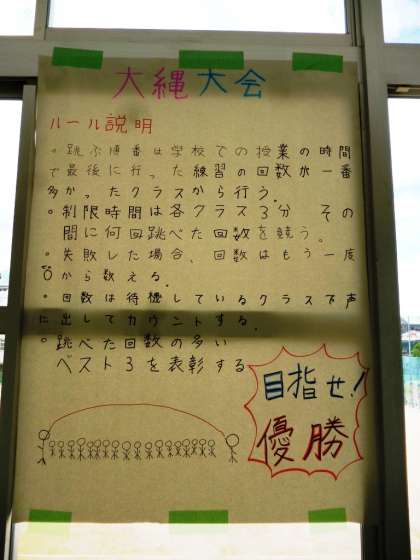 大縄大会
ルール説明
。跳ぶ順番は学校での授業の時間
で最後に行った練習の回数が一番
多かったクラスから行う。
。制限時間は各クラス3分 その
間に何回跳べた回数を競う。
。失敗した場合、回数はもう一度
0から数える。
。回数は待機しているクラスで声
に出してカウントする。
。跳べた回数の多い
ベスト3を表彰する
目指せ!
優勝